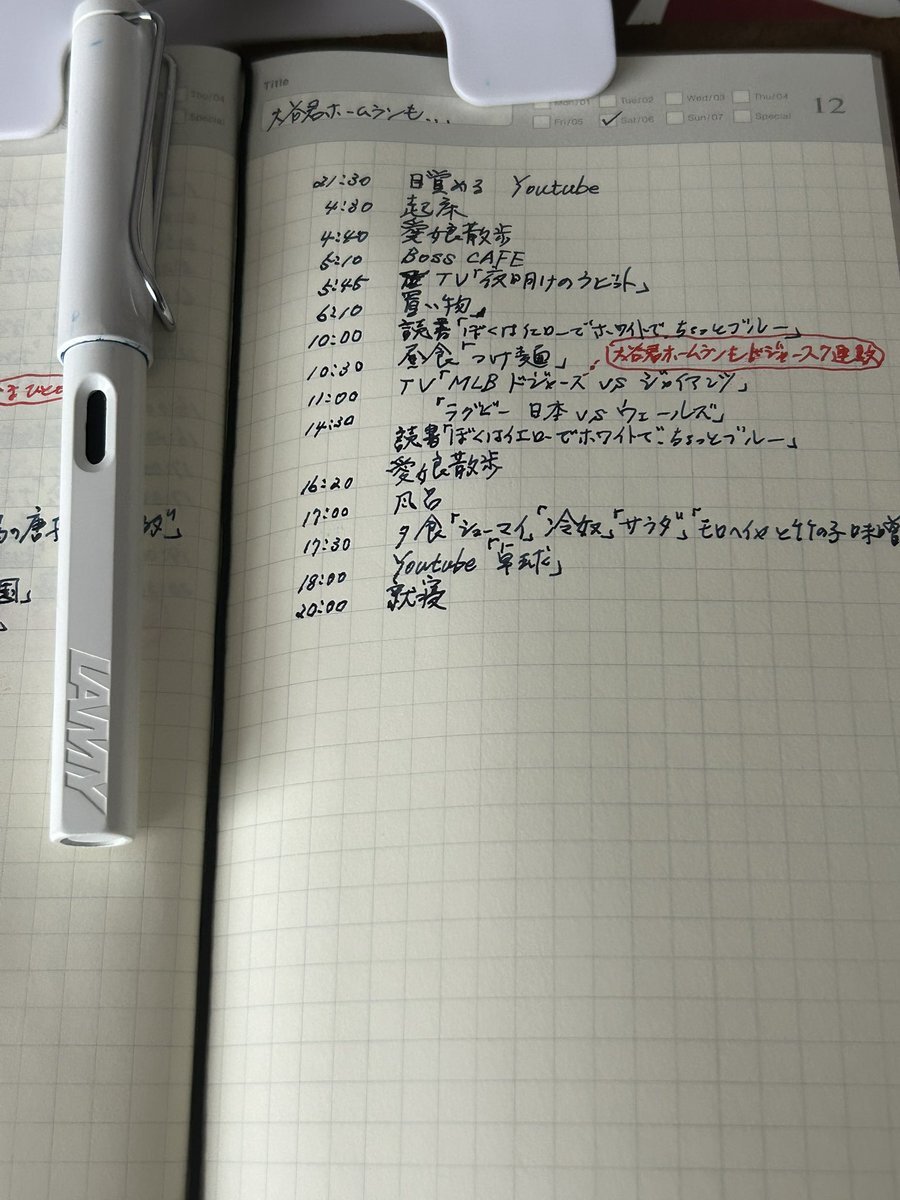 Title
大谷君ホームランも...
Mon/01 Tue/02 Wed/03 Thu/04
Fri/05 Sat/06 Sun/07 Special
12
Thu/04
Special
21:30 目覚める Youtube
4:30 起床
4:40 愛娘散歩
5:10 BOSS CAFE
5:45 TV「夜明けのうどん」
6:10 買い物
10:00 読書「ぼくはイエローでホワイトで、ちょっとブルー」
10:30 昼食「つけ麺」
大谷君ホームランもドジャース7連敗
11:00 TV「MLB ドジャーズ vs ジャイアンツ」
14:30 「ラグビー 日本 vs ウェールズ」
読書「ぼくはイエローでホワイトで、ちょっとブルー」
16:20 愛娘散歩
17:00 風呂
17:30 夕食「シューマイ」「冷奴」「サラダ」「モロヘイヤと竹の子味噌
18:00 Youtube「卓球」
20:00 就寝
の唐
国」
LAMY